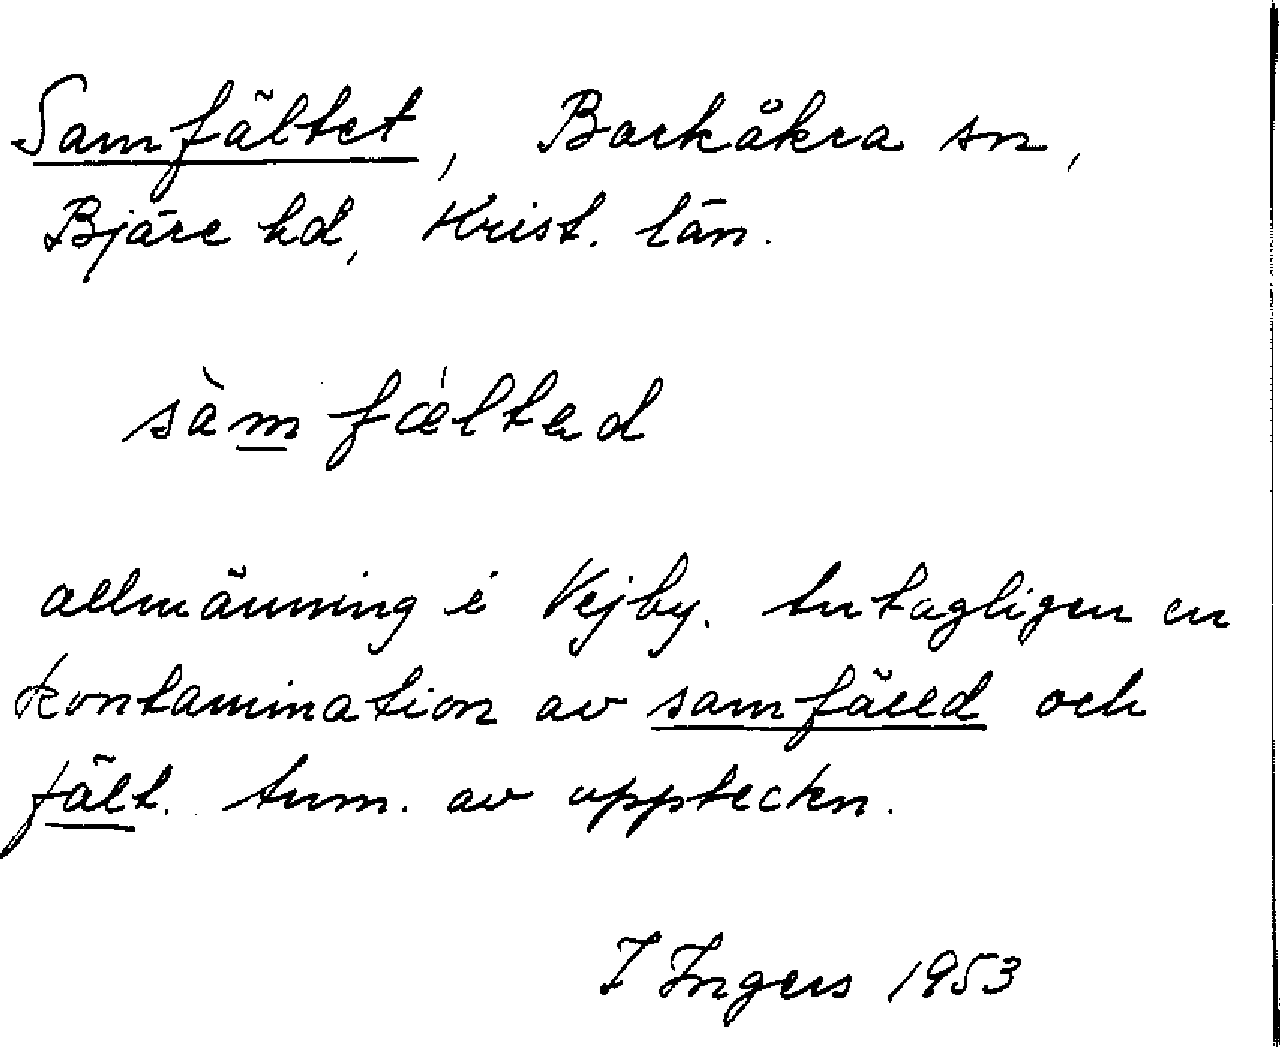 Samfältet, Barkåkra sn,
Bjäre hd, Krist. län.
sàm fǽltəd
allmänning i Vejby. Antagligen en
kontamination av samfälld och
fält. Anm. av uppteckn.
I Ingers 1953